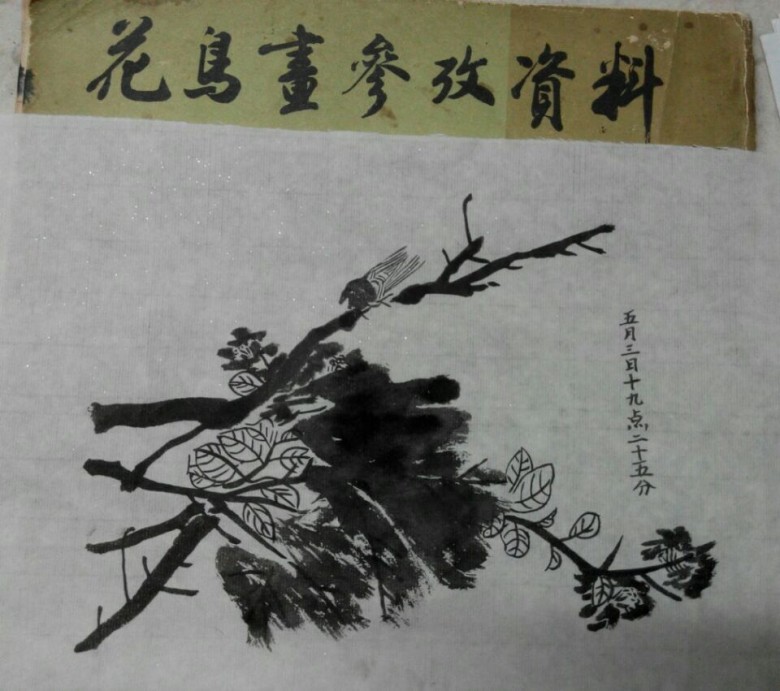 花鳥畫參攷資料
五月三日十九点二十五分